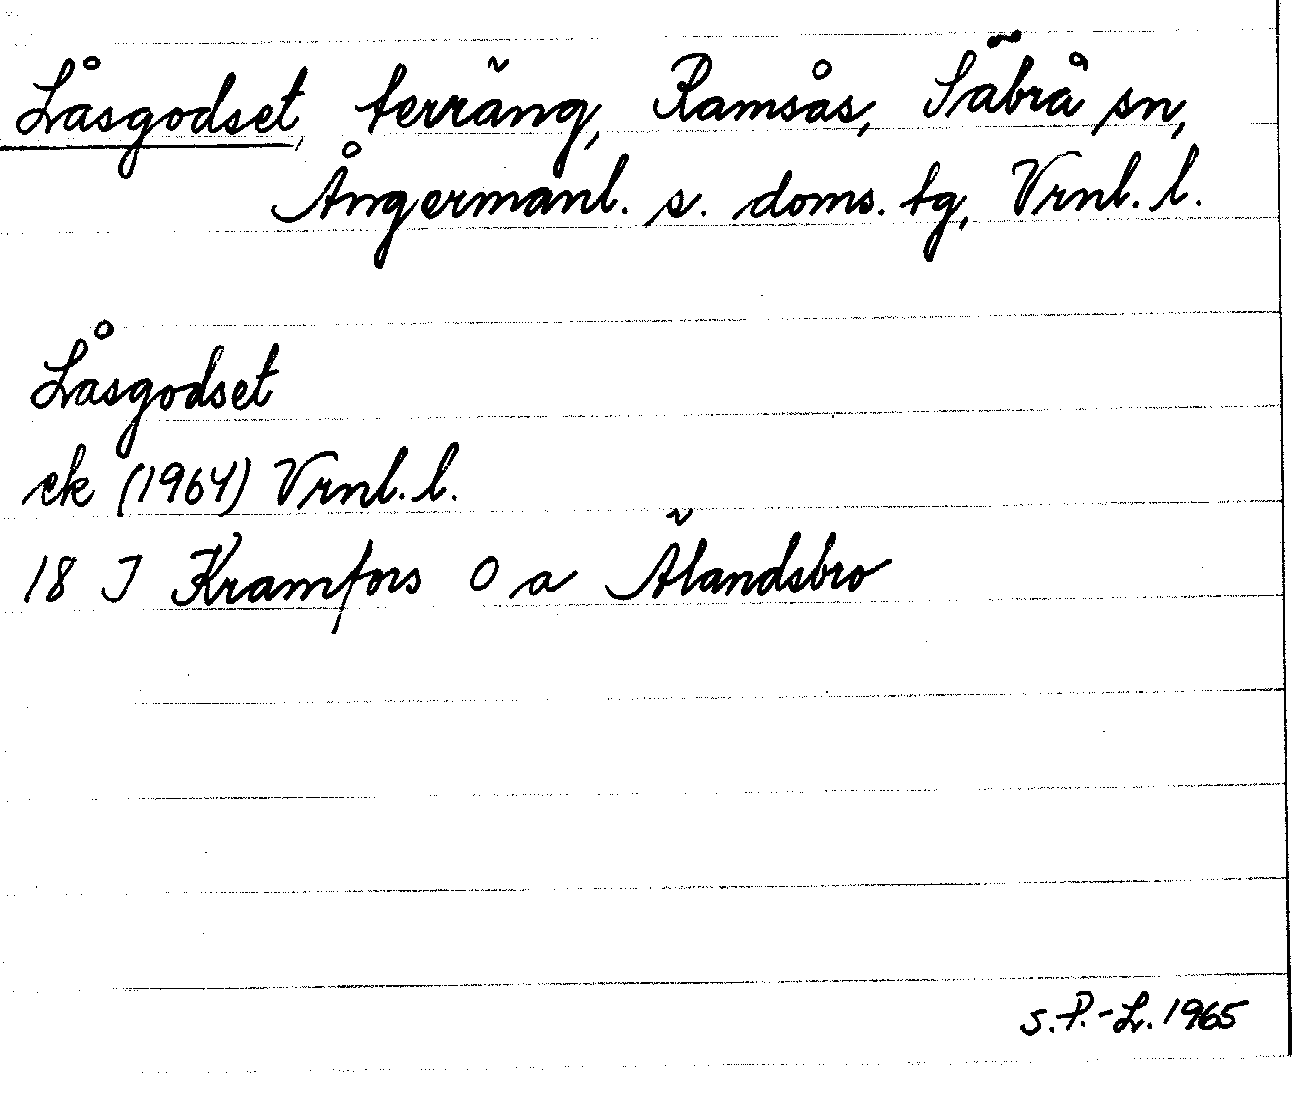 Låsgodset, terräng, Ramsås, Säbrå sn,
Ångermanl. s. doms. tg, Vrnl. l.
Låsgodset
ek (1964) Vrnl. l.
18 I Kramfors O a Älandsbro
S. P.-L. 1965